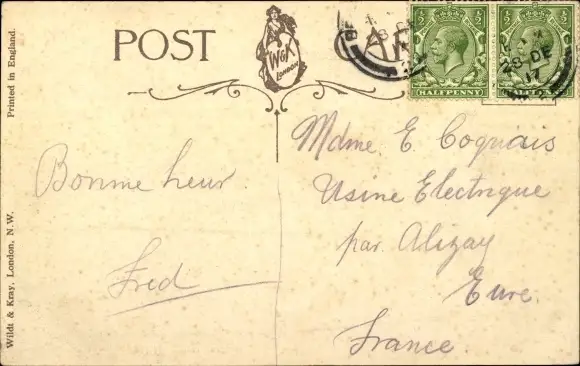 POST CARD
W&K
LONDON
HALFPENNY HALFPENNY
28 DE
17
Printed in England.
Wildt & Kray, London, N.W.
Bonne heur.
Fred
Mdme. E. Coquais
Usine Electrique
par Alizay
Eure.
France.